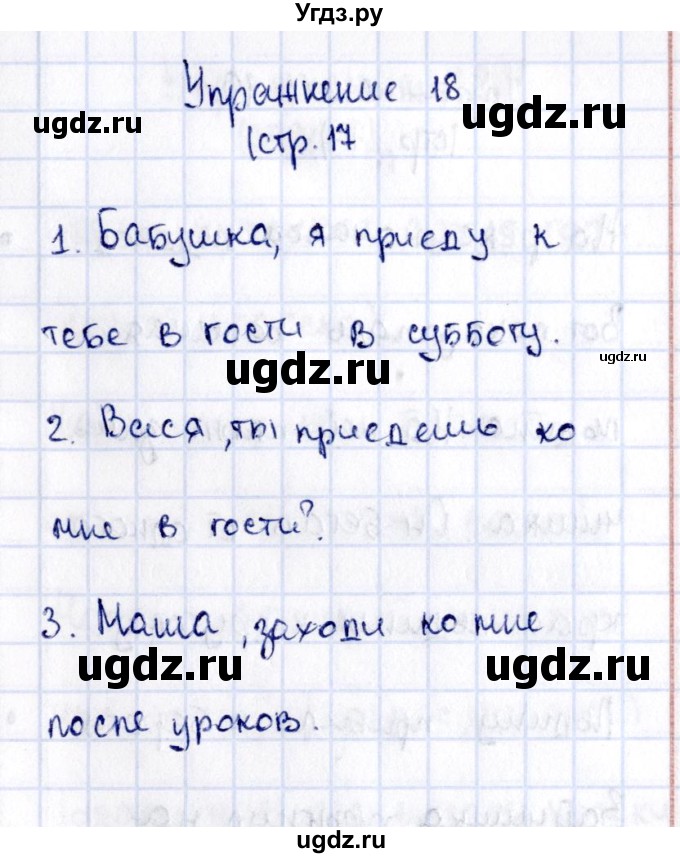 Угдз.ру
Упражнение 18
ugdz.ru ugdz.ru
(стр. 17
1. Бабушка, я приеду к
тебе в гости в субботу.
ugdz.ru
ugdz.ru
2. Вася, ты приедешь ко
мне в гости?
3. Маша, заходи ко мне
ugdz.ru ugdz.ru
после уроков.
ugdz.ru